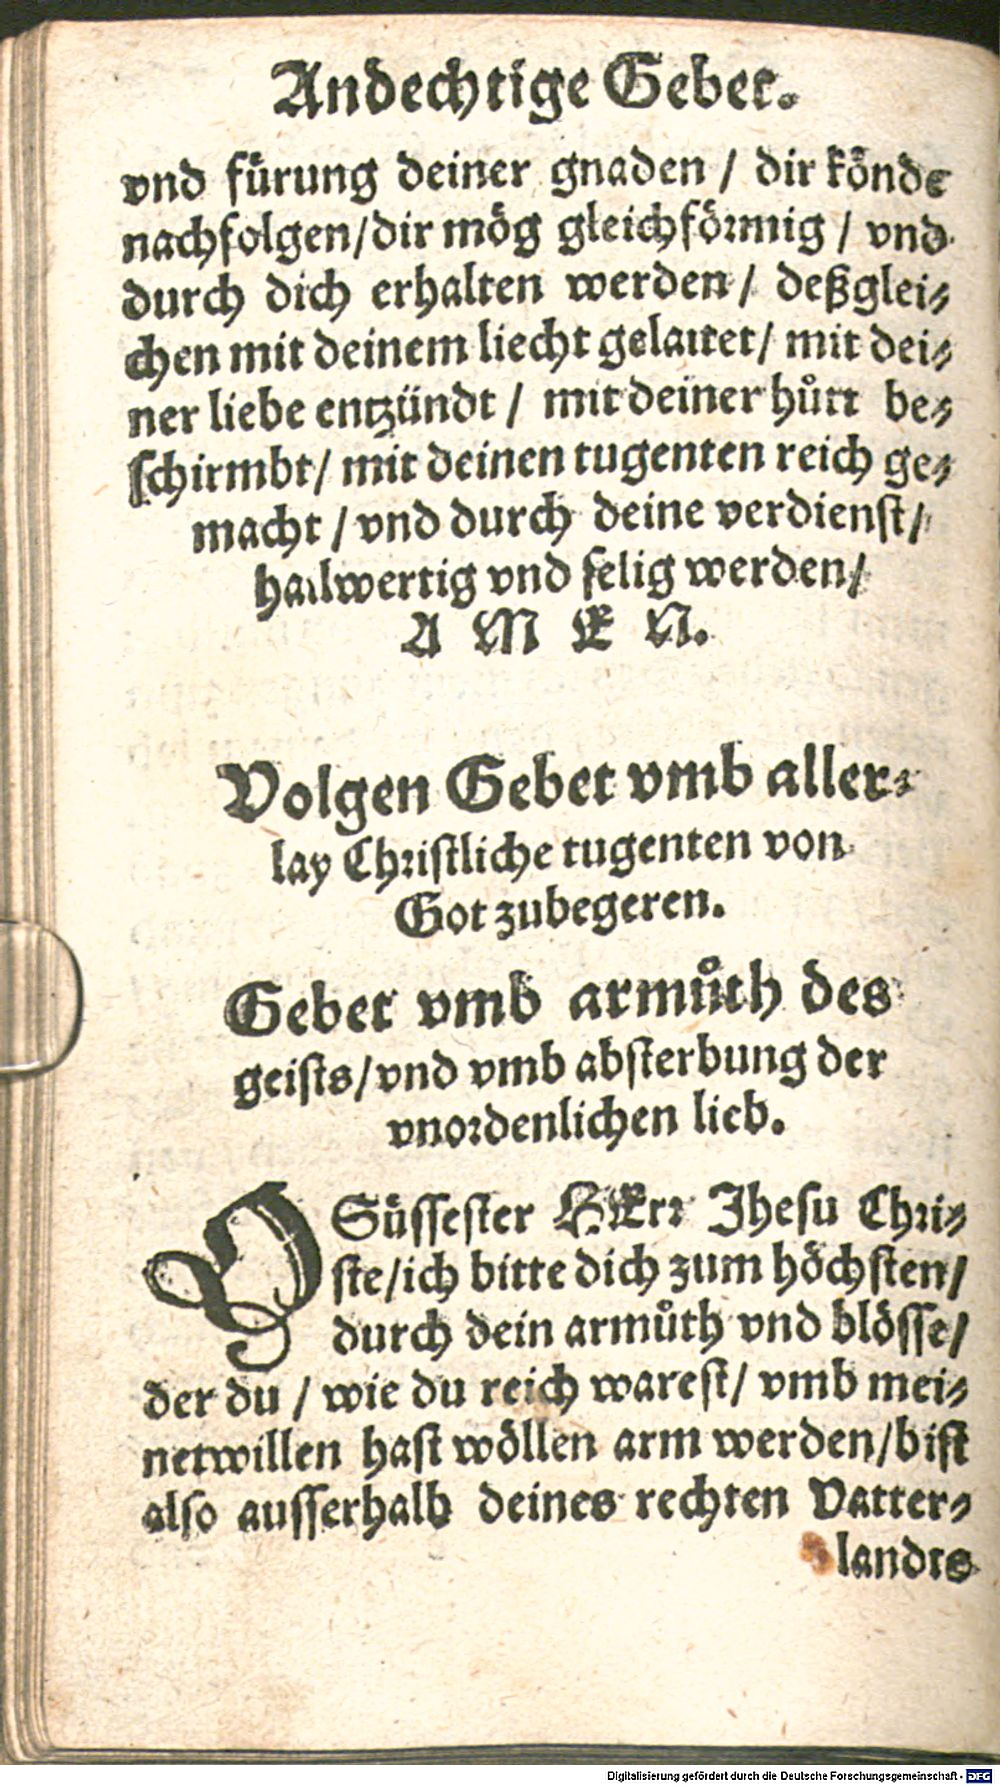 Andechtige Gebet.
vnd fürung deiner gnaden / dir könde
nachfolgen/dir mög gleichförmig / vnd
durch dich erhalten werden / deßglei⸗
chen mit deinem liecht gelaitet/ mit dei⸗
ner liebe entzündt / mit deiner hůtt be⸗
schirmbt/ mit deinen tugenten reich ge⸗
macht / vnd durch deine verdienst/
hailwertig vnd selig werden/
A M E N.
Volgen Gebet vmb aller⸗
lay Christliche tugenten von
Got zubegeren.
Gebet vmb armůth des
geists/vnd vmb absterbung der
vnordenlichen lieb.
O Süssester HErr Jhesu Chri⸗
ste/ich bitte dich zum höchsten/
durch dein armůth vnd blösse/
der du / wie du reich warest/ vmb mei⸗
netwillen hast wöllen arm werden/bist
also ausserhalb deines rechten Vatter⸗
landts
Digitalisierung gefördert durch die Deutsche Forschungsgemeinschaft - DFG